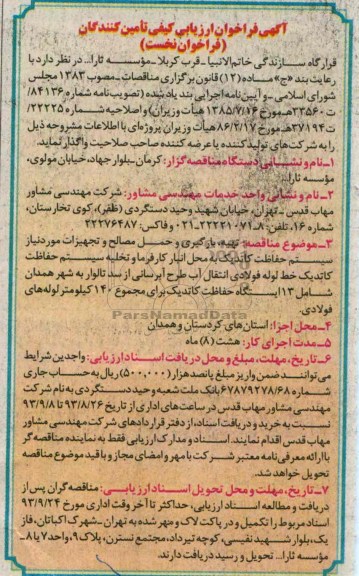 آگهی فراخوان ارزیابی کیفی تأمین کنندگان
(فراخوان نخست)
قرارگاه سازندگی خاتم‌الانبیا - قرب کربلا - مؤسسه ثارا... در نظر دارد با
رعایت بند «ج» ماده (۱۲) قانون برگزاری مناقصات - مصوب ۱۳۸۳ مجلس
شورای اسلامی - و آیین نامه اجرایی بند یاد شده (تصویب‌نامه شماره ۸۴۱۳۶/
ت ۳۳۵۶۰هـ مورخ ۱۳۸۵/۷/۱۶ هیأت وزیران) و اصلاحیه شماره ۲۲۲۲۵/
ت ۳۷۱۹۴هـ مورخ ۸۶/۲/۱۷ هیأت وزیران پروژه‌ای با اطلاعات مشروحه ذیل
را به شرکت‌های تولید کننده یا عرضه کننده صاحب صلاحیت واگذار نماید.
۱- نام و نشانی دستگاه مناقصه‌گزار: کرمان - بلوار جهاد، خیابان مولوی،
مؤسسه ثارا...
۲- نام و نشانی واحد خدمات مهندسی مشاور: شرکت مهندسی مشاور
مهاب قدس - تهران، خیابان شهید وحید دستگردی (ظفر)، کوی تخارستان،
شماره ۱۶، تلفن: ۸-۲۲۲۲۱۰۷۱-۰۲۱ و فاکس: ۲۲۲۷۶۴۸۷
۳- موضوع مناقصه: تهیه، بارگیری و حمل مصالح و تجهیزات مورد نیاز
سیستم حفاظت کاتدیک به محل انبار کارفرما و تخلیه سیستم حفاظت
کاتدیک خط لوله فولادی انتقال آب طرح آبرسانی از سد تالوار به شهر همدان
شامل ۱۳ ایستگاه حفاظت کاتدیک برای مجموع ۱۴۰ کیلومتر لوله‌های
فولادی.
ParsNamadData
۴- محل اجرا: استان‌های کردستان و همدان
۵- مدت اجرای کار: هشت (۸) ماه
۶- تاریخ، مهلت، مبلغ و محل دریافت اسناد ارزیابی: واجدین شرایط
می‌توانند ضمن واریز مبلغ پانصد هزار (۵۰۰,۰۰۰) ریال به حساب جاری
شماره ۶۷۸۷۹۲۷۸/۶۸ بانک ملت شعبه وحید دستگردی به نام شرکت
مهندسی مشاور مهاب قدس در ساعت‌های اداری از تاریخ ۹۳/۸/۲۶ تا ۹۳/۹/۸
نسبت به خرید و دریافت اسناد، از دفتر قراردادهای شرکت مهندسی مشاور
مهاب قدس اقدام نمایند. اسناد و مدارک ارزیابی فقط به نماینده مناقصه‌گر
با ارائه معرفی نامه معتبر شرکت با مهر و امضای مجاز و با قید موضوع مناقصه
تحویل خواهد شد.
۷- تاریخ، مهلت و محل تحویل اسناد ارزیابی: مناقصه‌گران پس از
دریافت و مطالعه اسناد ارزیابی، حداکثر تا آخر وقت اداری مورخ ۹۳/۹/۲۴
اسناد مربوط را تکمیل و در پاکت لاک و مهر شده به تهران - شهرک اکباتان، فاز
یک، بلوار شهید نفیسی، کوچه تیرداد، مجتمع نسترن، پلاک ۹، واحد ۷ یا ۸ -
مؤسسه ثارا... تحویل و رسید دریافت دارند.